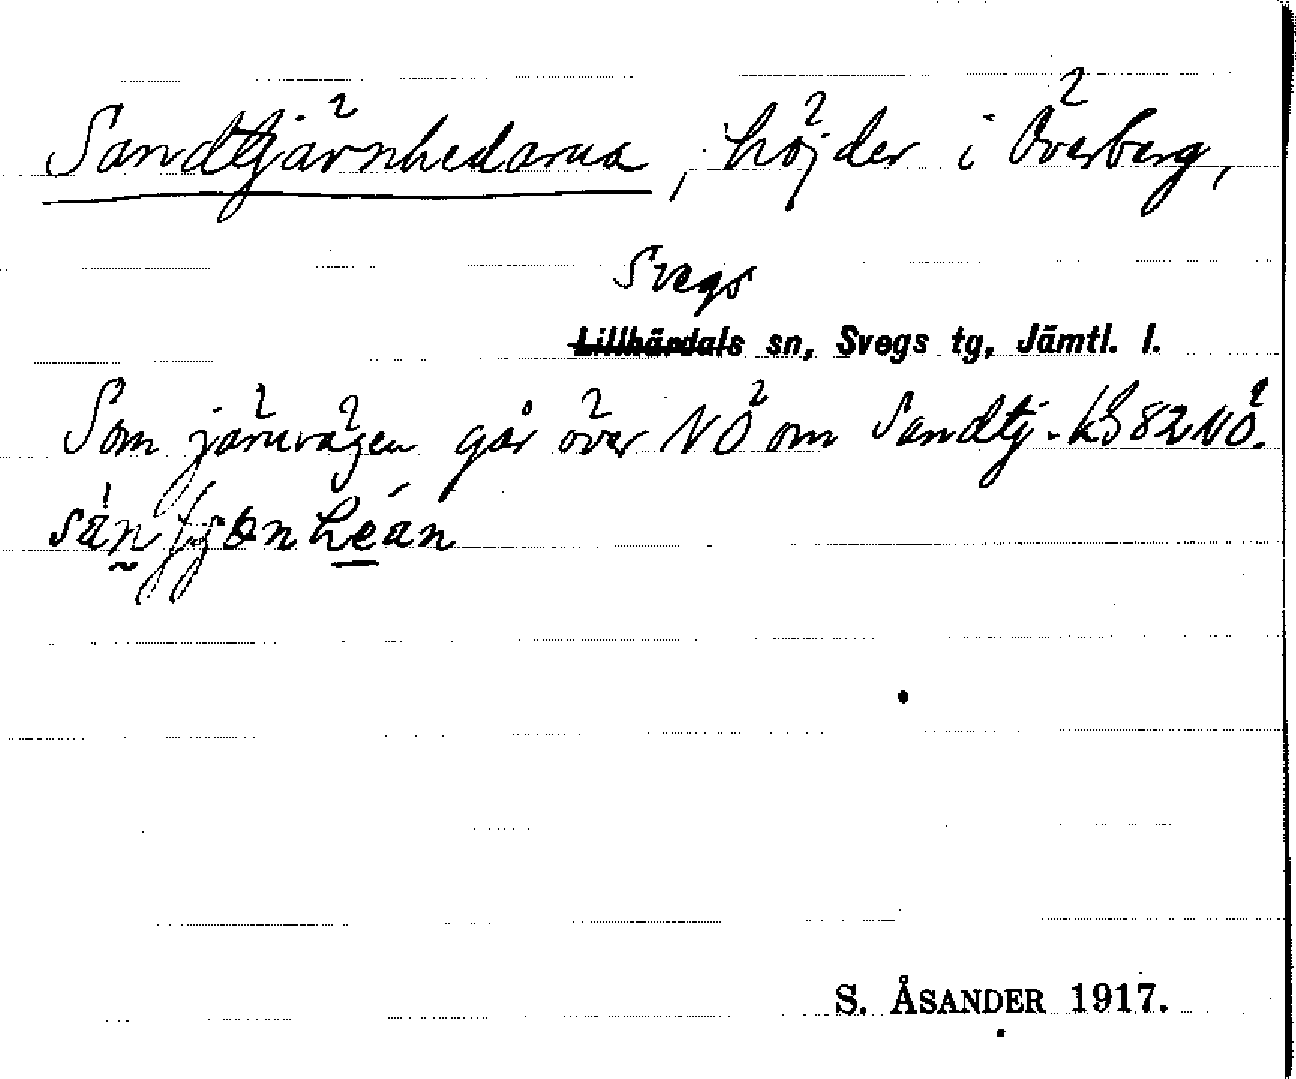 Sandtjärnhedarna, höjder i Överberg,
Svegs
Lillhärdals sn, Svegs tg, Jämtl. l.
Som järnvägen går över NÖ om Sandtj. 82 NÖ.
S. ÅSANDER 1917.